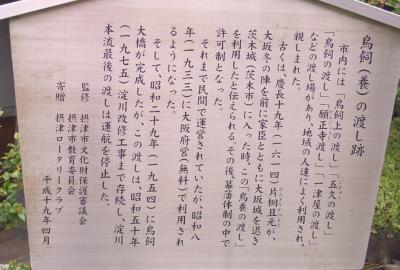 鳥飼(養)の渡し跡
市内には「鳥飼上の渡し」「五久の渡し」
「鳥飼の渡し」「願正寺渡し」「一津屋の渡し」
などの渡し場があり、地域の人達によく利用され、
親しまれた。
古くは、慶長十九年(一六一四)片桐且元が、
大坂冬の陣を前に家臣とともに大坂城を退き
茨木城(茨木市)に入った時、この「鳥養の渡し」
を利用したと伝えられる。その後、幕藩体制の中で
許可制となった。
それまで民間で運営されていたが、昭和八
年(一九三三)に大阪府営(無料)で利用され
るようになった。
そして、昭和二十九年(一九五四)に鳥飼
大橋が完成したが、この渡しは、昭和五十年
(一九七五)淀川改修工事まで存続し、淀川
本流最後の渡しは運航を停止した。
監修 摂津市文化財保護審議会
摂津市教育委員会
寄贈 摂津ロータリークラブ
平成十九年四月